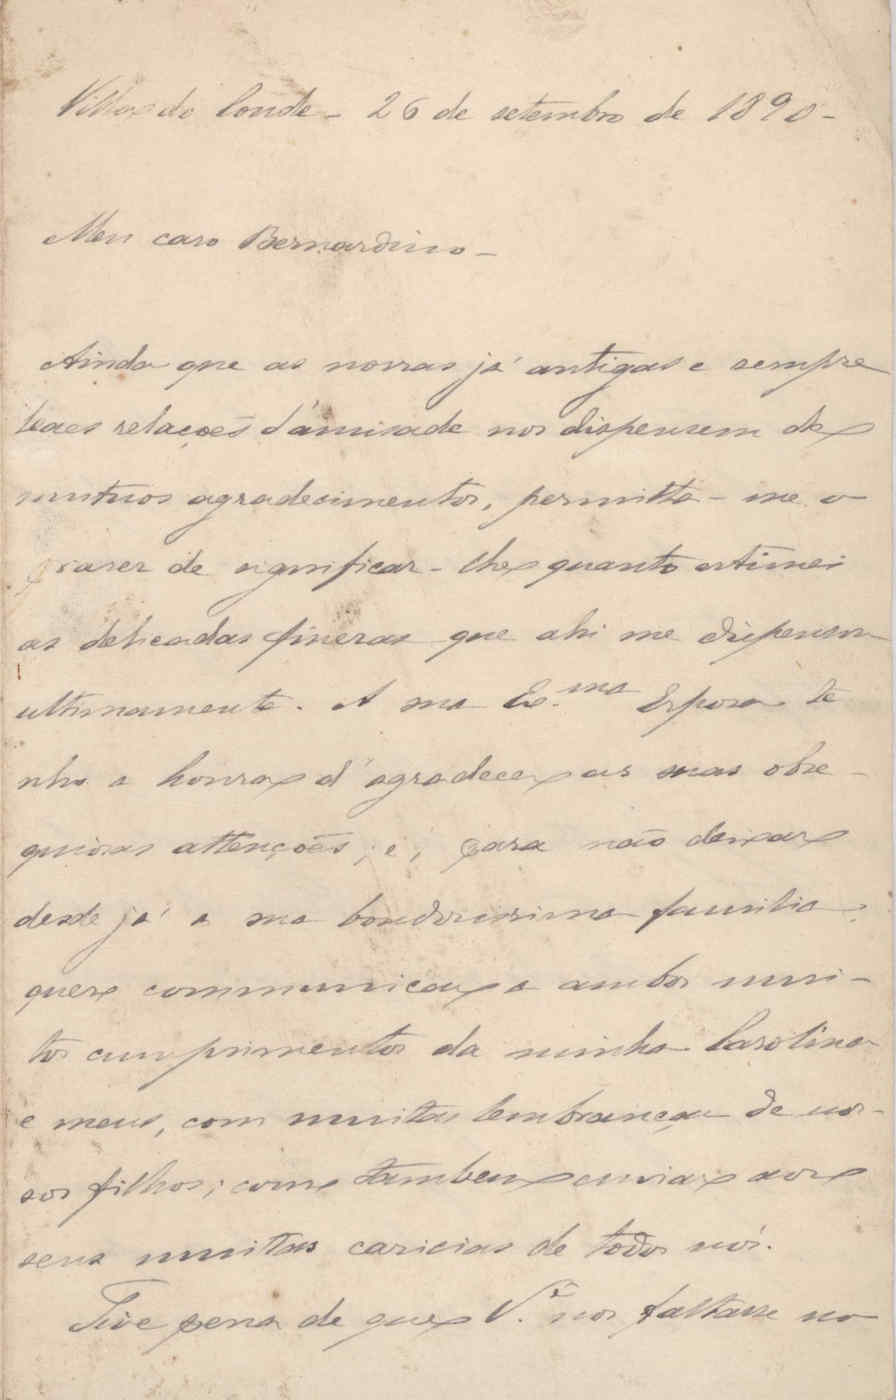 Villa do Conde - 26 de setembro de 1890 -
Meu caro Bernardino -
Ainda que as nossas já antigas e sempre
leaes relações d'amisade nos dispensem de
mutuos agradecimentos, permitta-me o
praser de significar-lhe quanto estimei
as delicadas finesas que ahi me dispensou
ultimamente. A sua Ex.ma Esposa te
nho a honra d'agradecer as suas obse-
quiosas attenções; e, para não deixar
desde já a sua bondosissima familia,
quero communicar a ambos mui-
tos cumprimentos da minha Carolina
e meus, com muitas lembranças de nos-
sos filhos; como tambem enviar aos
seus muitas caricias de todos nós.
Tive pena de que V.ê nos faltasse no